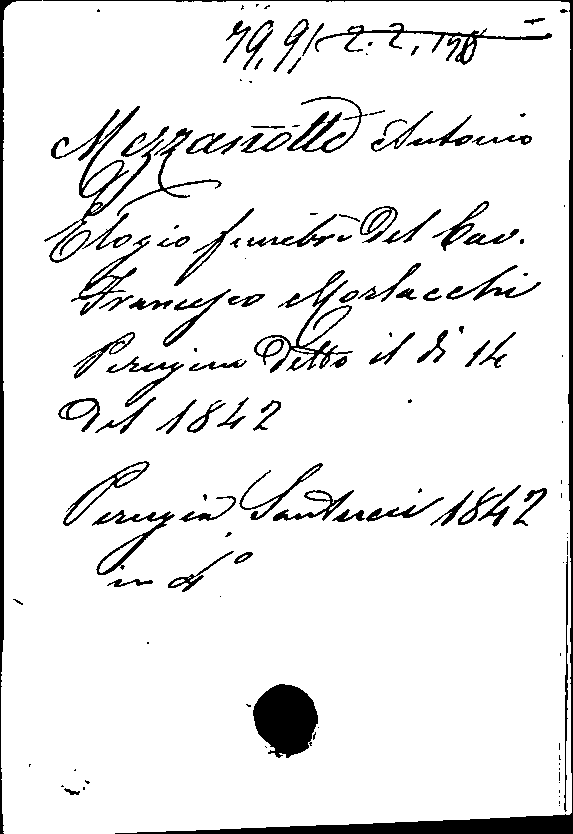 79,9/ 2.2,170
Mezzanotte Antonio
Elogio funebre del Cav.
Francesco Morlacchi
Perugino detto il di 14
del 1842
Perugia Santucci 1842
in 4°